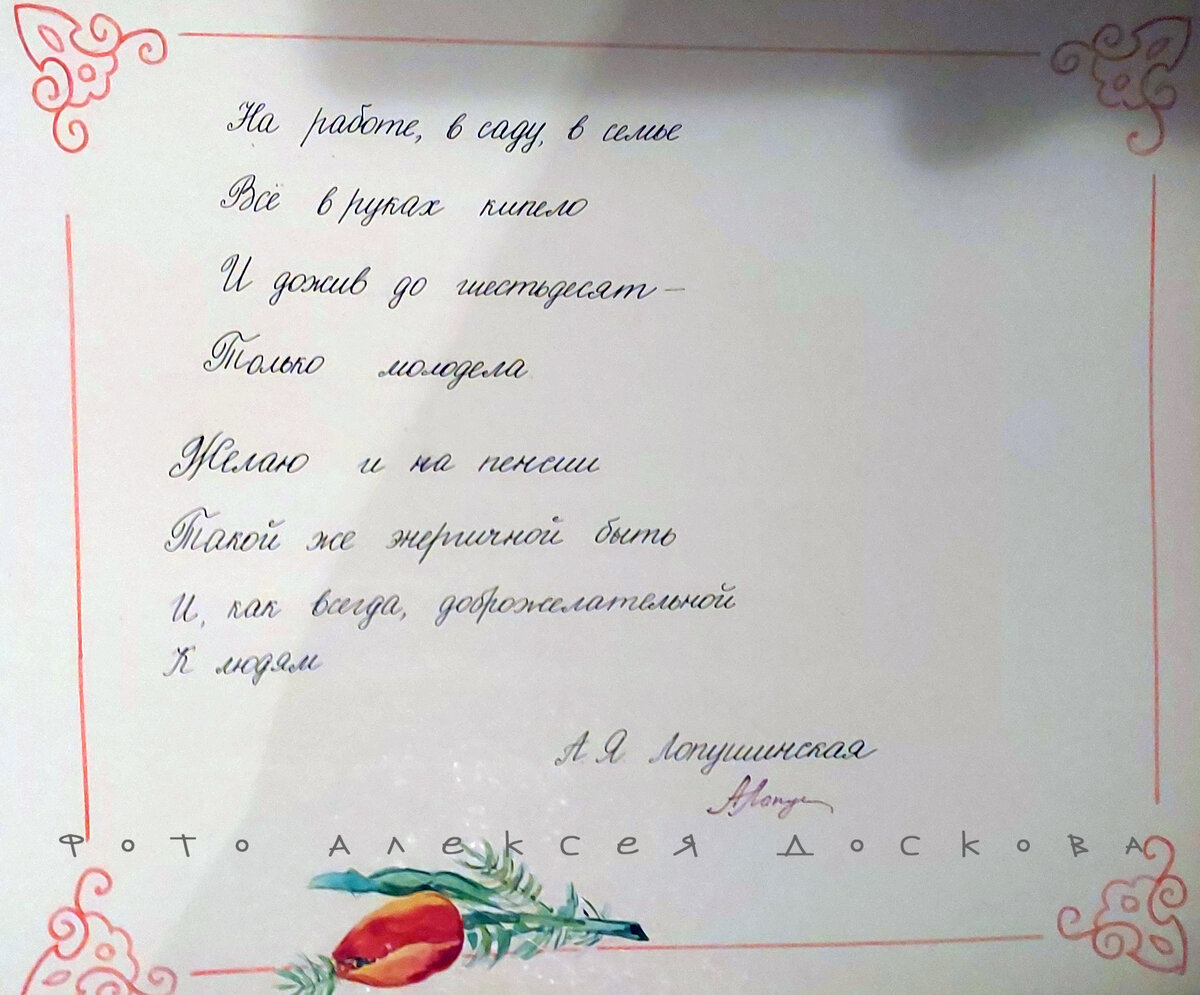 На работе, в саду, в семье
Всё в руках кипело
И дожив до шестьдесят –
Только молодела
Желаю и на пенсии
Такой же энергичной быть
И, как всегда, доброжелательной
К людям
А Я Лопушинская
АЛопу
ФОТО АЛЕКСЕЯ ДОСКОВА